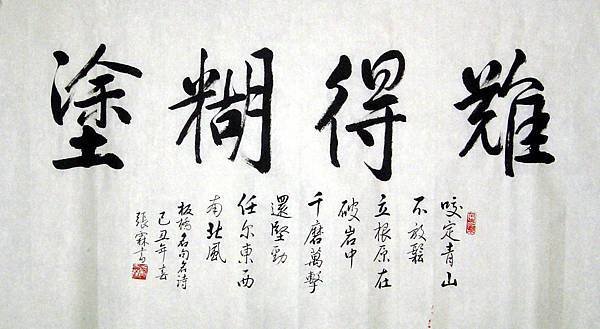 難得糊塗
咬定青山
不放鬆
立根原在
破岩中
千磨萬擊
還堅勁
任尔東西
南北風
板橋名句名詩
己丑年春
張霖書